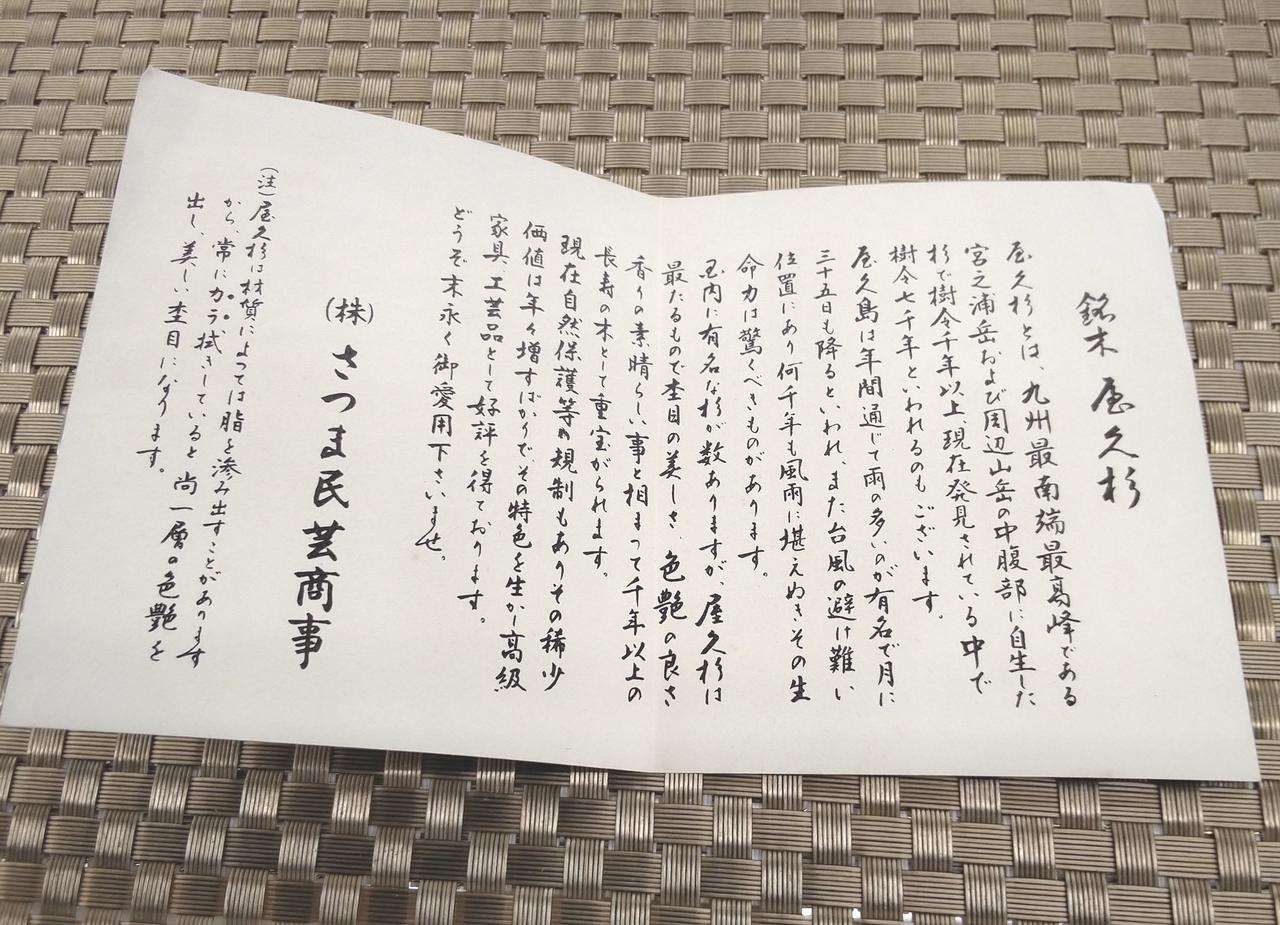 銘木 屋久杉
屋久杉とは、九州最南端最高峰である
宮之浦岳および周辺山岳の中腹部に自生した
杉で樹令千年以上、現在発見されている中で
樹令七千年といわれるのもございます。
屋久島は年間通じて雨の多いのが有名で月に
三十五日も降るといわれ、また台風の避け難い
位置にあり何千年も風雨に堪えぬきその生
命力は驚くべきものがあります。
国内に有名な杉が数ありますが、屋久杉は
最たるもので杢目の美しさ、色艶の良さ
香りの素晴らしい事と相まって千年以上の
長寿の木として重宝がられます。
現在自然保護等の規制もありその稀少
価値は年々増すばかりで、その特色を生かし高級
家具、工芸品として好評を得ております。
どうぞ末永く御愛用下さいませ。
(株) さつま民芸商事
(注)屋久杉は材質によっては脂を滲み出すことがあります
から、常にカラ拭きしていると 尚一層の色艶を
出し、美しい杢目になります。